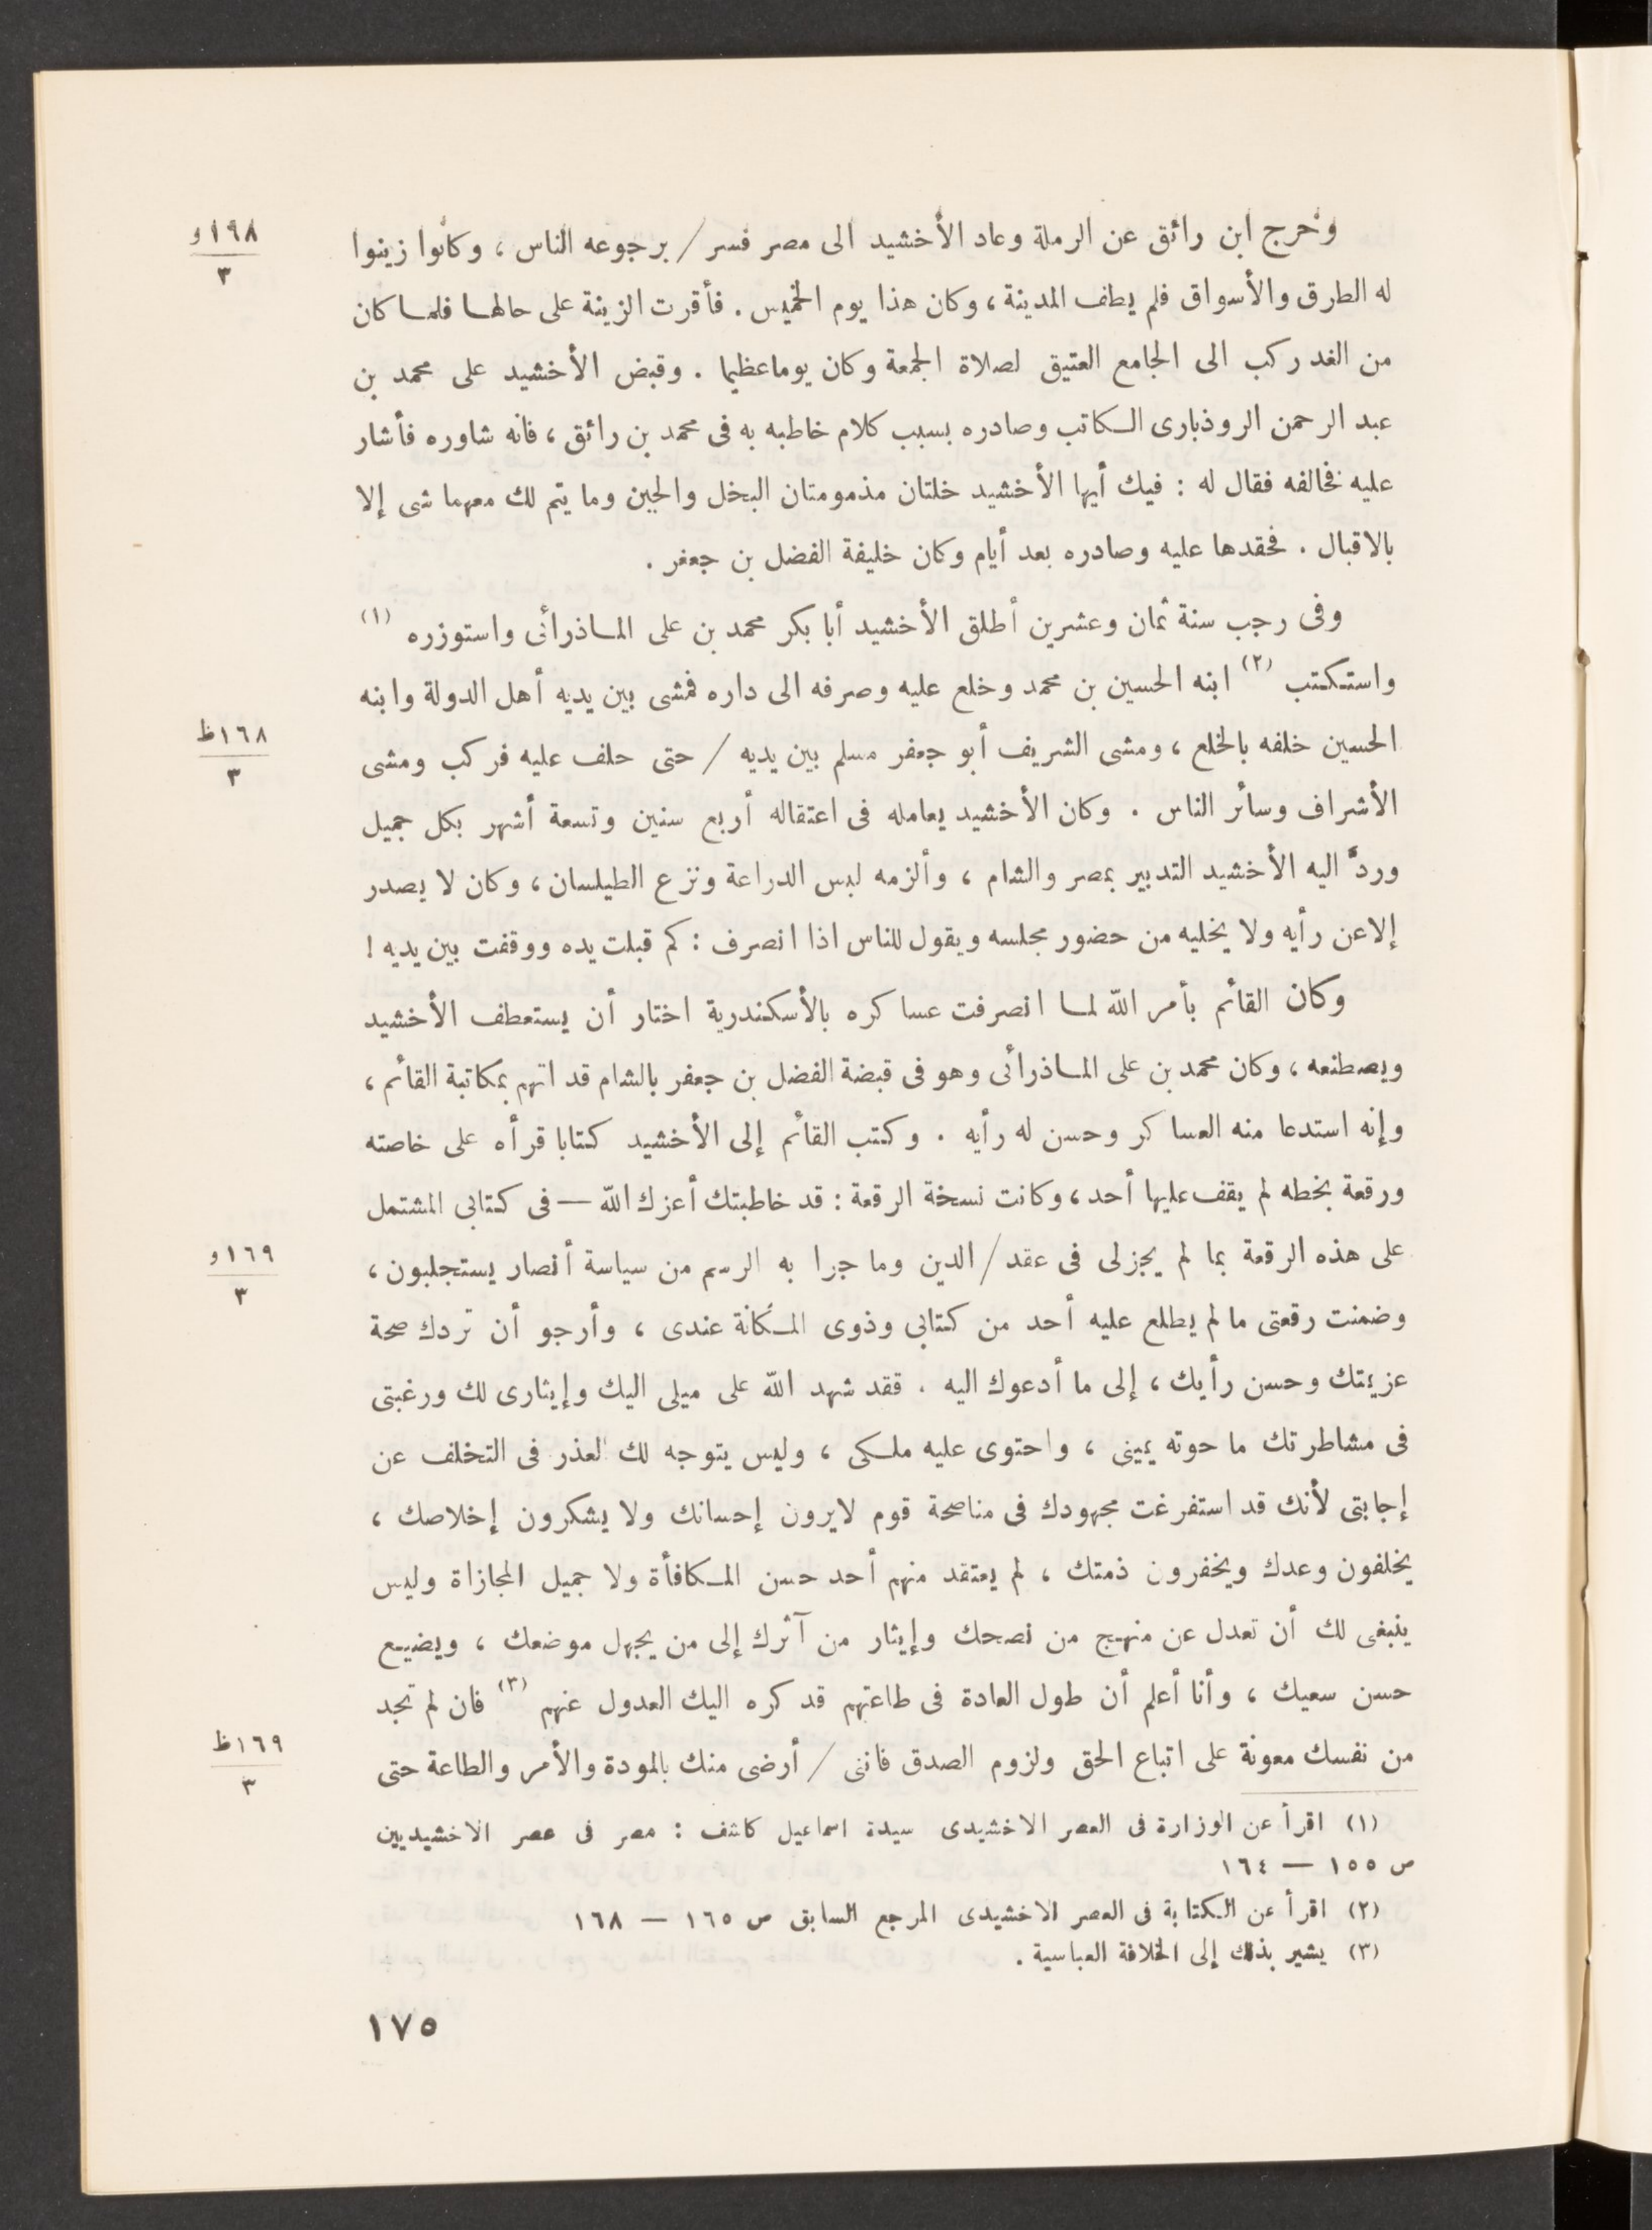 وخرج ابن رائق عن الرملة وعاد الأخشيد الى مصر فسر / برجوعه الناس ، وكانوا زينوا
١٩٨و
٣
له الطرق والأسواق فلم يطف المدينة ، وكان هذا يوم الخميس . فأقرت الزينة على حالها فلما كان
من الغد ركب الى الجامع العتيق لصلاة الجمعة وكان يوما عظيما . وقبض الأخشيد على محمد بن
عبد الرحمن الروذبارى الكاتب وصادره بسبب كلام خاطبه به فى محمد بن رائق ، فانه شاوره فأشار
عليه فخالفه فقال له : فيك أيها الأخشيد خلتان مذمومتان البخل والجبن وما يتم لك معهما شى إلا
بالاقبال . فحقدها عليه وصادره بعد أيام وكان خليفة الفضل بن جعفر .
وفى رجب سنة ثمان وعشرين أطلق الأخشيد أبا بكر محمد بن على الماذرائى واستوزره (١)
واستكتب (٢) ابنه الحسين بن محمد وخلع عليه وصرفه الى داره فمشى بين يديه أهل الدولة وابنه
الحسين خلفه بالخلع ، ومشى الشريف أبو جعفر مسلم بين يديه / حتى حلف عليه فركب ومشى
١٦٨ظ
٣
الأشراف وسائر الناس . وكان الأخشيد يعامله فى اعتقاله أربع سنين وتسعة أشهر بكل جميل
وردَّ اليه الأخشيد التدبير بمصر والشام ، وألزمه لبس الدراعة ونزع الطيلسان ، وكان لا يصدر
إلا عن رأيه ولا يخليه من حضور مجلسه ويقول للناس اذا انصرف : كم قبلت يده ووقفت بين يديه !
وكان القائم بأمر الله لما انصرفت عساكره بالأسكندرية اختار أن يستعطف الأخشيد
ويصطنعه ، وكان محمد بن على الماذرائى وهو فى قبضة الفضل بن جعفر بالشام قد اتهم بمكاتبة القائم ،
وإنه استدعا منه العساكر وحسن له رأيه . وكتب القائم إلى الأخشيد كتابا قرأه على خاصته
ورقعة بخطه لم يقف عليها أحد ، وكانت نسخة الرقعة : قد خاطبتك أعزك الله — فى كتابى المشتمل
على هذه الرقعة بما لم يجز لى فى عقد / الدين وما جرا به الرسم من سياسة أنصار يستجلبون ،
١٦٩و
٣
وضمنت رقعتى ما لم يطلع عليه أحد من كتابى وذوى المكانة عندى ، وأرجو أن تردك صحة
عزيمتك وحسن رأيك ، إلى ما أدعوك اليه . فقد شهد الله على ميلى اليك وإيثارى لك ورغبتى
فى مشاطرتك ما حوته يمينى ، واحتوى عليه ملكى ، وليس يتوجه لك العذر فى التخلف عن
إجابتى لأنك قد استفرغت مجهودك فى مناصحة قوم لايرون إحسانك ولا يشكرون إخلاصك ،
يخلفون وعدك ويخفرون ذمتك ، لم يعتقد منهم أحد حسن المكافأة ولا جميل المجازاة وليس
ينبغى لك أن تعدل عن منهج من نصحك وإيثار من آثرك إلى من يجهل موضعك ، ويضيع
حسن سعيك ، وأنا أعلم أن طول العادة فى طاعتهم قد كره اليك العدول عنهم (٣) فان لم تجد
من نفسك معونة على اتباع الحق ولزوم الصدق فاننى / أرضى منك بالمودة والأمر والطاعة حتى
١٦٩ظ
٣
(١) اقرأ عن الوزارة فى العصر الاخشيدى سيدة اسماعيل كاشف : مصر فى عصر الاخشيديين
ص ١٥٥ — ١٦٤
(٢) اقرأ عن الكتابة فى العصر الاخشيدى المرجع السابق ص ١٦٥ — ١٦٨
(٣) يشير بذلك إلى الخلافة العباسية .
١٧٥